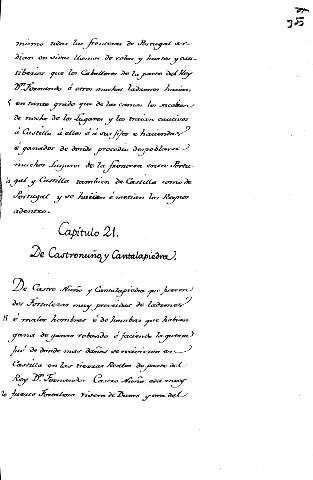 mismo todas las fronteras de Portugal ar-
dian en vivas llamas de robos y hurtos y cau-
tiberios que los Caballeros de la parte del Rey
Dn. Fernando é otros muchos ladrones hacian
en tanto grado que de las camas los sacaban
de noche de los Lugares y los traian cautivos
á Castilla á ellos é á sus fijos e haciendas
é ganados de donde procedia despoblarse
muchos lugares de la frontera entre Portu-
gal y Castilla tambien de Castilla como de
Portugal y se huian é metian los Reynos
adentro.
Capítulo 21.
De Castronuño, y Cantalapiedra.
De Castro Nuño y Cantalapiedra que fueron
dos Fortalezas muy proveidas de ladrones
é malos hombres é de hombres que habian
gana de ganar robando é faciendo la guerra
fué de donde mas daños se vinieron en
Castilla en las tierras Reales de parte del
Rey Dn. Fernando. Castro Nuño era muy
fuerte Fortaleza rivera de Duero y era del